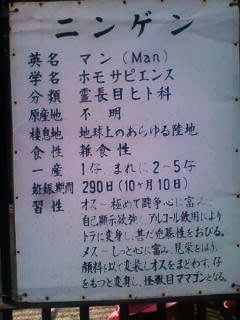 ニンゲン
英名 マン(Man)
学名 ホモサピエンス
分類 霊長目ヒト科
原産地 不明
棲息地 地球上のあらゆる陸地
食性 雑食性
一産 1仔、まれに2~5仔
妊娠期間 290日(10ヶ月10日)
習性 オス~極めて闘争心に富み、
自己顕示欲強く、アルコール飲用により
トラに変身し、甚だ兇暴性をおびる。
メス~しっと心に富み、見栄をはり、
顔料を以て変装しオスをまどわす、仔
をもつと変身し、怪獣目ママゴンとなる。